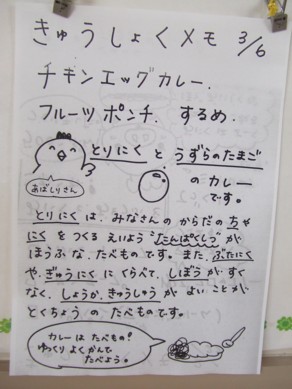 きゅうしょくメモ 3/6
チキンエッグカレー.
フルーツポンチ. するめ.
とりにく と うずらのたまご
のカレー
です。
あばしりさん
とりにくは、みなさんのからだのちゃ
にくをつくるえいよう“たんぱくしつ”が
ほうふな、たべものです。また、ぶたにく
や、ぎゅうにくにくらべて、しぼうがすく
なく、しょうか、きゅうしゅうがよいことが
とくちょうのたべものです。
カレーはたべもの!
ゆっくりよくかんで
たべよう。